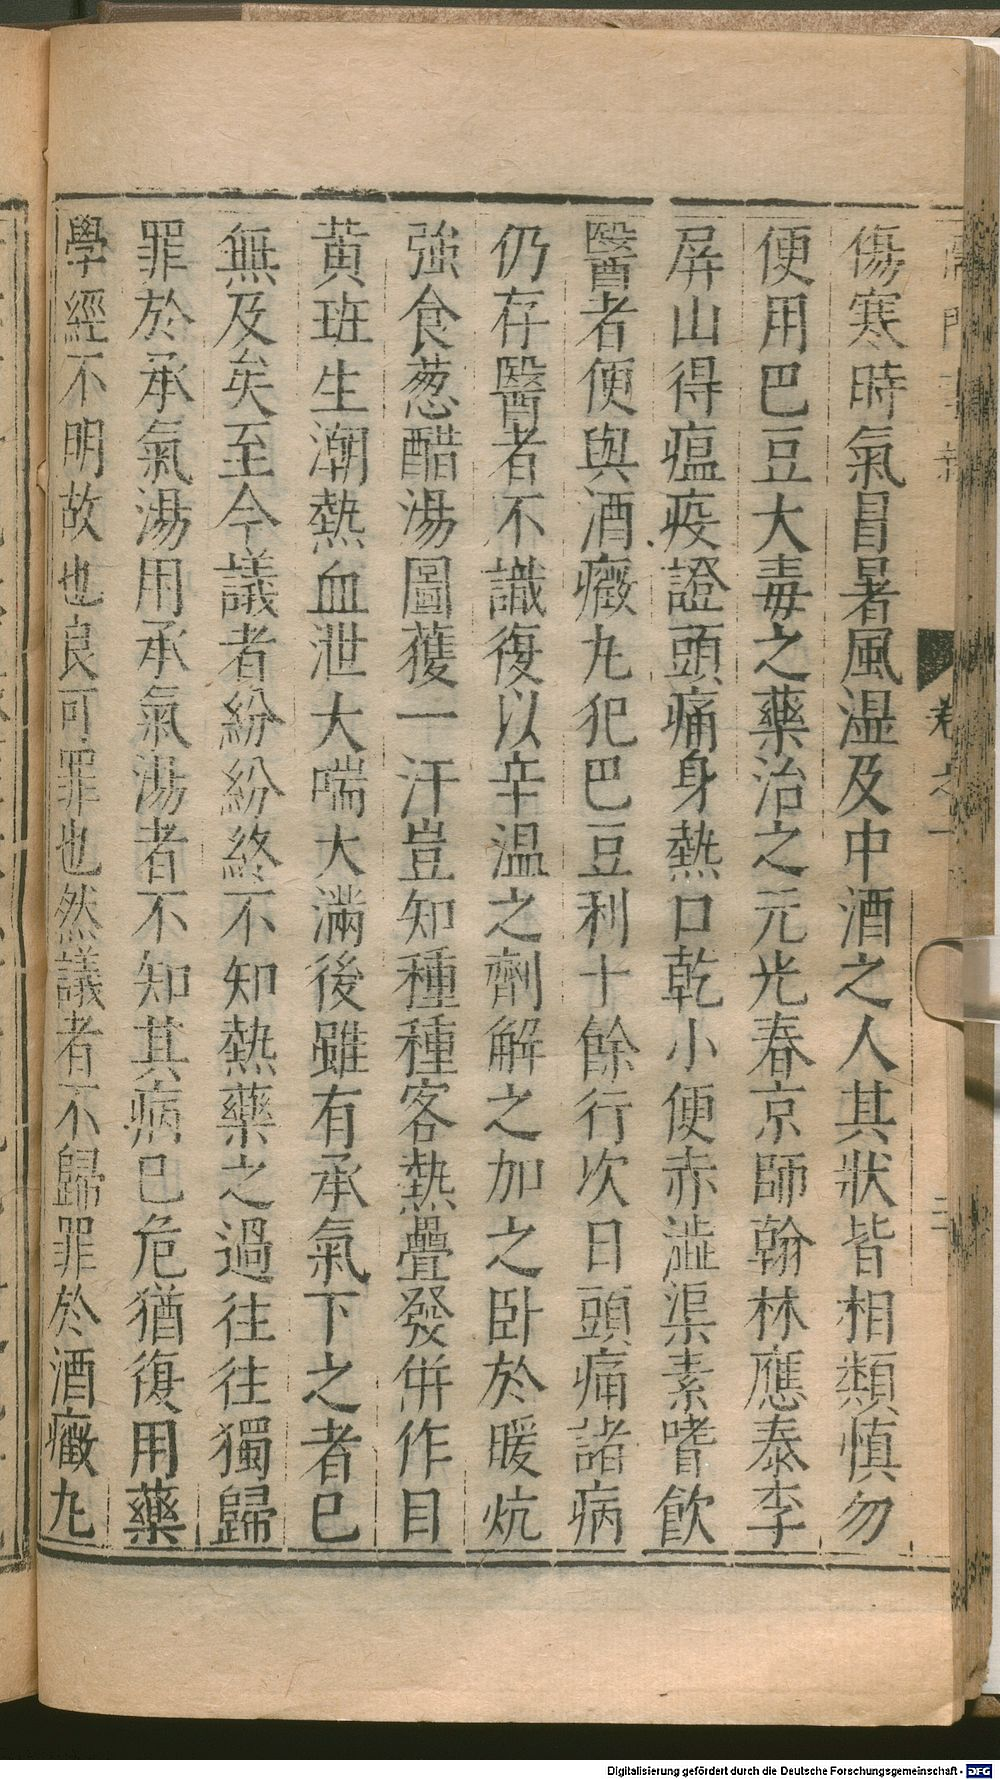 傷寒時氣冒暑風溫及中酒之人其狀皆相類慎勿
便用巴豆大毒之藥治之元光春京師翰林應泰李
屏山得瘟疫證頭痛身熱口乾小便赤澁渠素嗜飲
醫者便與酒癥丸犯巴豆利十餘行次日頭痛諸病
仍存醫者不識復以辛温之劑解之加之卧於暖炕
強食葱醋湯圖獲一汗豈知種種客熱疊發併作目
黃班生潮熱血泄大喘大滿後雖有承氣下之者已
無及矣至今議者紛紛終不知熱藥之過往往獨歸
罪於承氣湯用承氣湯者不知其病已危猶復用藥
學經不明故也良可罪也然議者不歸罪於酒癥丸
卷之一
三
Digitalisierung gefördert durch die Deutsche Forschungsgemeinschaft - DFG